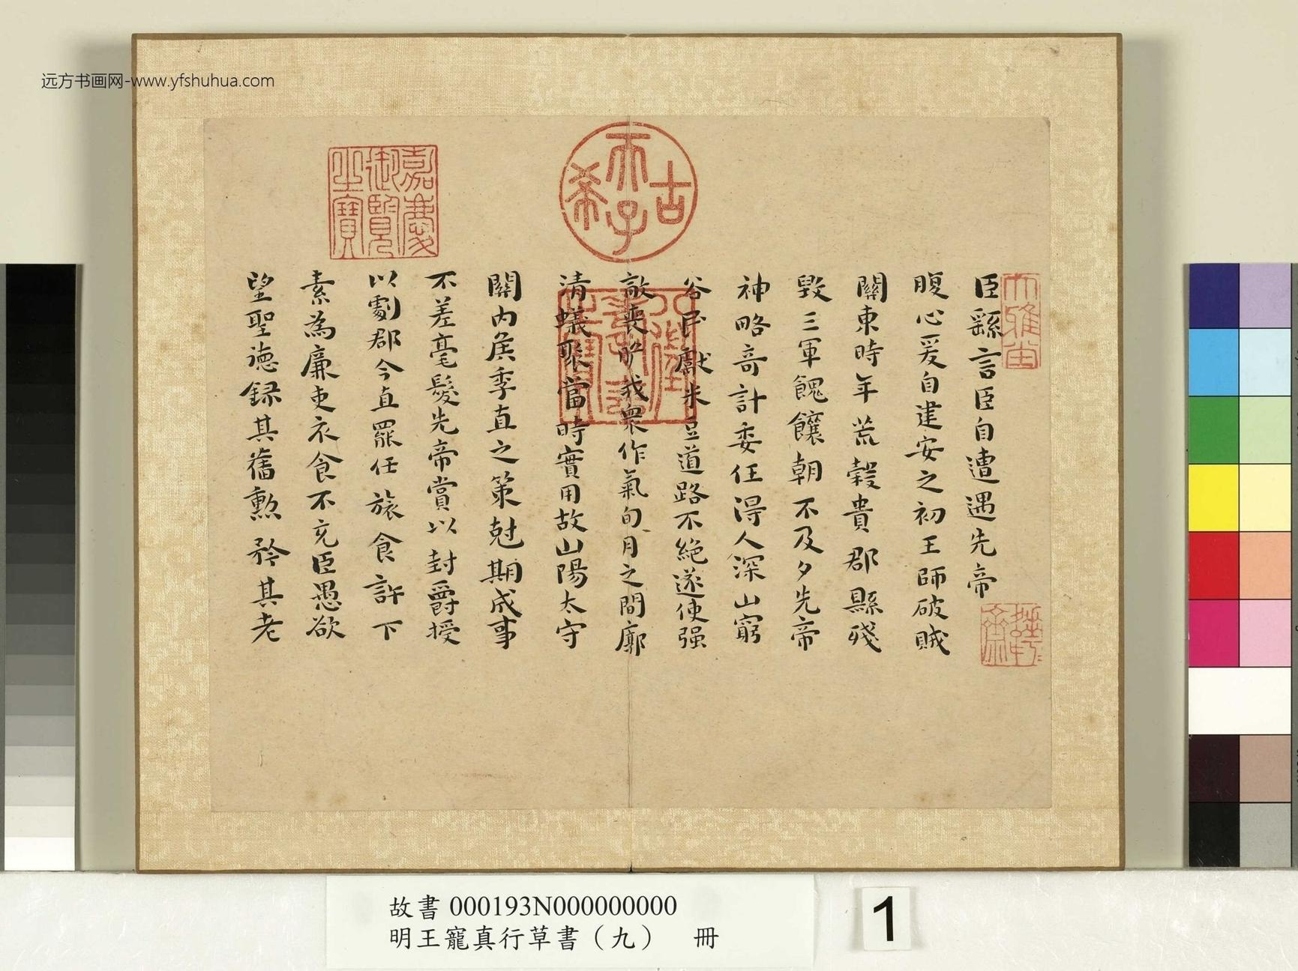 远方书画网-www.yfshuhua.com
臣繇言臣自遭遇先帝
腹心爰自建安之初王師破賊
關東時年荒穀貴郡縣殘
毀三軍餽饟朝不及夕先帝
神略奇計委任得人深山窮
谷民獻米豆道路不絕遂使强
敵喪膽我衆作氣旬月之間廓
清蟻聚當時實用故山陽太守
關內侯季直之策尅期成事
不差毫髮先帝賞以封爵授
以劇郡今直罷任旅食許下
素為廉吏衣食不充臣愚欲
望聖德録其舊勲矜其老
古希天子
嘉慶御覽之寶
八徵耄念之寶
故書 000193N000000000
明王寵真行草書（九） 冊
1